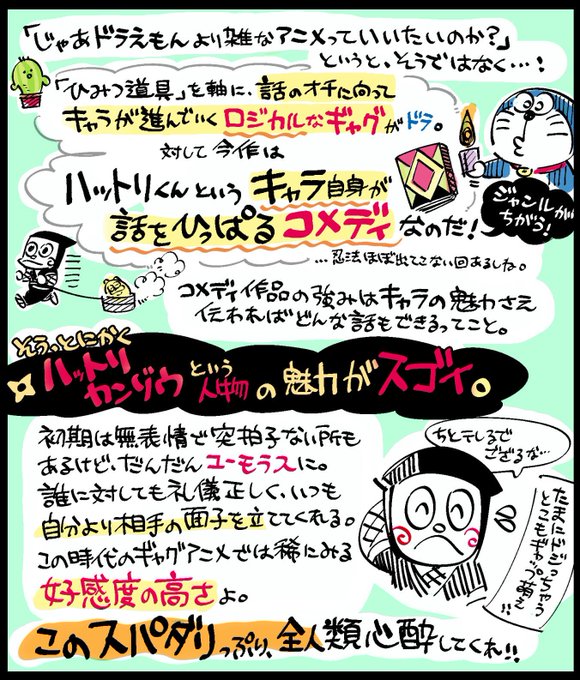 「じゃあドラえもんより雑なアニメっていいたいのか?」
というと、そうではなく…!
「ひみつ道具」を軸に、話のオチに向って
キャラが進んでいくロジカルなギャグがドラ。
対して今作は
ハットリくんというキャラ自身が
話をひっぱるコメディなのだ!
ジャンルが
ちがう!
…忍法ほぼ出てこない回あるしな。
コメディ作品の強みはキャラの魅力さえ
伝わればどんな話もできるってこと。
そうっとにかく
ハットリ
カンゾウという人物の魅力がスゴイ。
初期は無表情で突拍子ない所も
あるけど、だんだんユーモラスに。
誰に対しても礼儀正しく、いつも
自分より相手の面子を立ててくれる。
この時代のギャグアニメでは稀にみる
好感度の高さよ。
ちとテレるで
ござるな…
たまにドジっちゃう
とこもギャップ萌え!!
このスパダリっぷり、全人類心酔してくれ!!